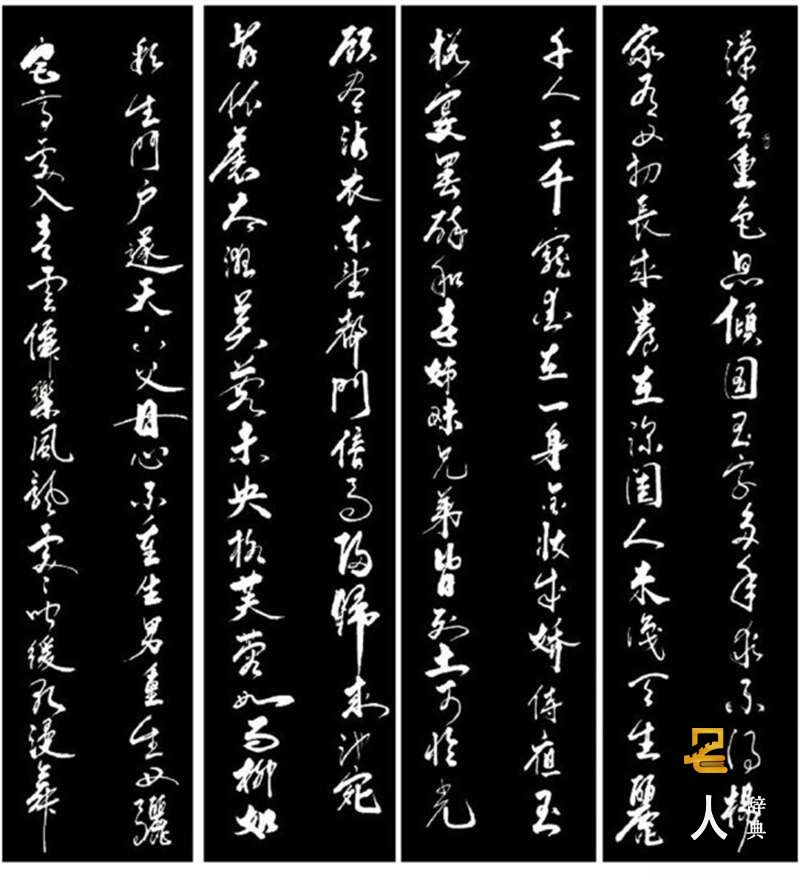 漢皇重色思傾國御宇多年求不得楊
家有女初長成養在深閨人未識天生麗
千人三千寵愛在一身金妝成嬌侍夜玉
樓宴罷醉和春姊妹兄弟皆列土可憐光
顧盡沾衣東望都門信馬歸歸來池苑
皆依舊太液芙蓉未央柳芙蓉如面柳如
彩生門戶遂天下父母心不重生男重生女驪
宮高處入青雲僊樂風飄處々聞緩歌漫舞
人辞典